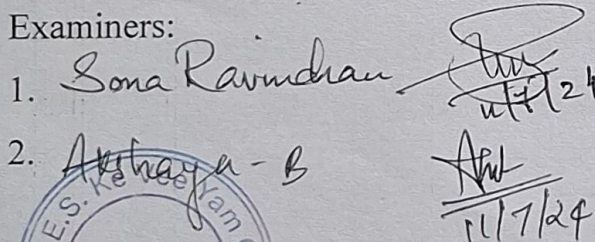 Examiners:
1. Sona Ravindran
11/7/24
2. Akshaya - B
11/7/24
E.S. Ke